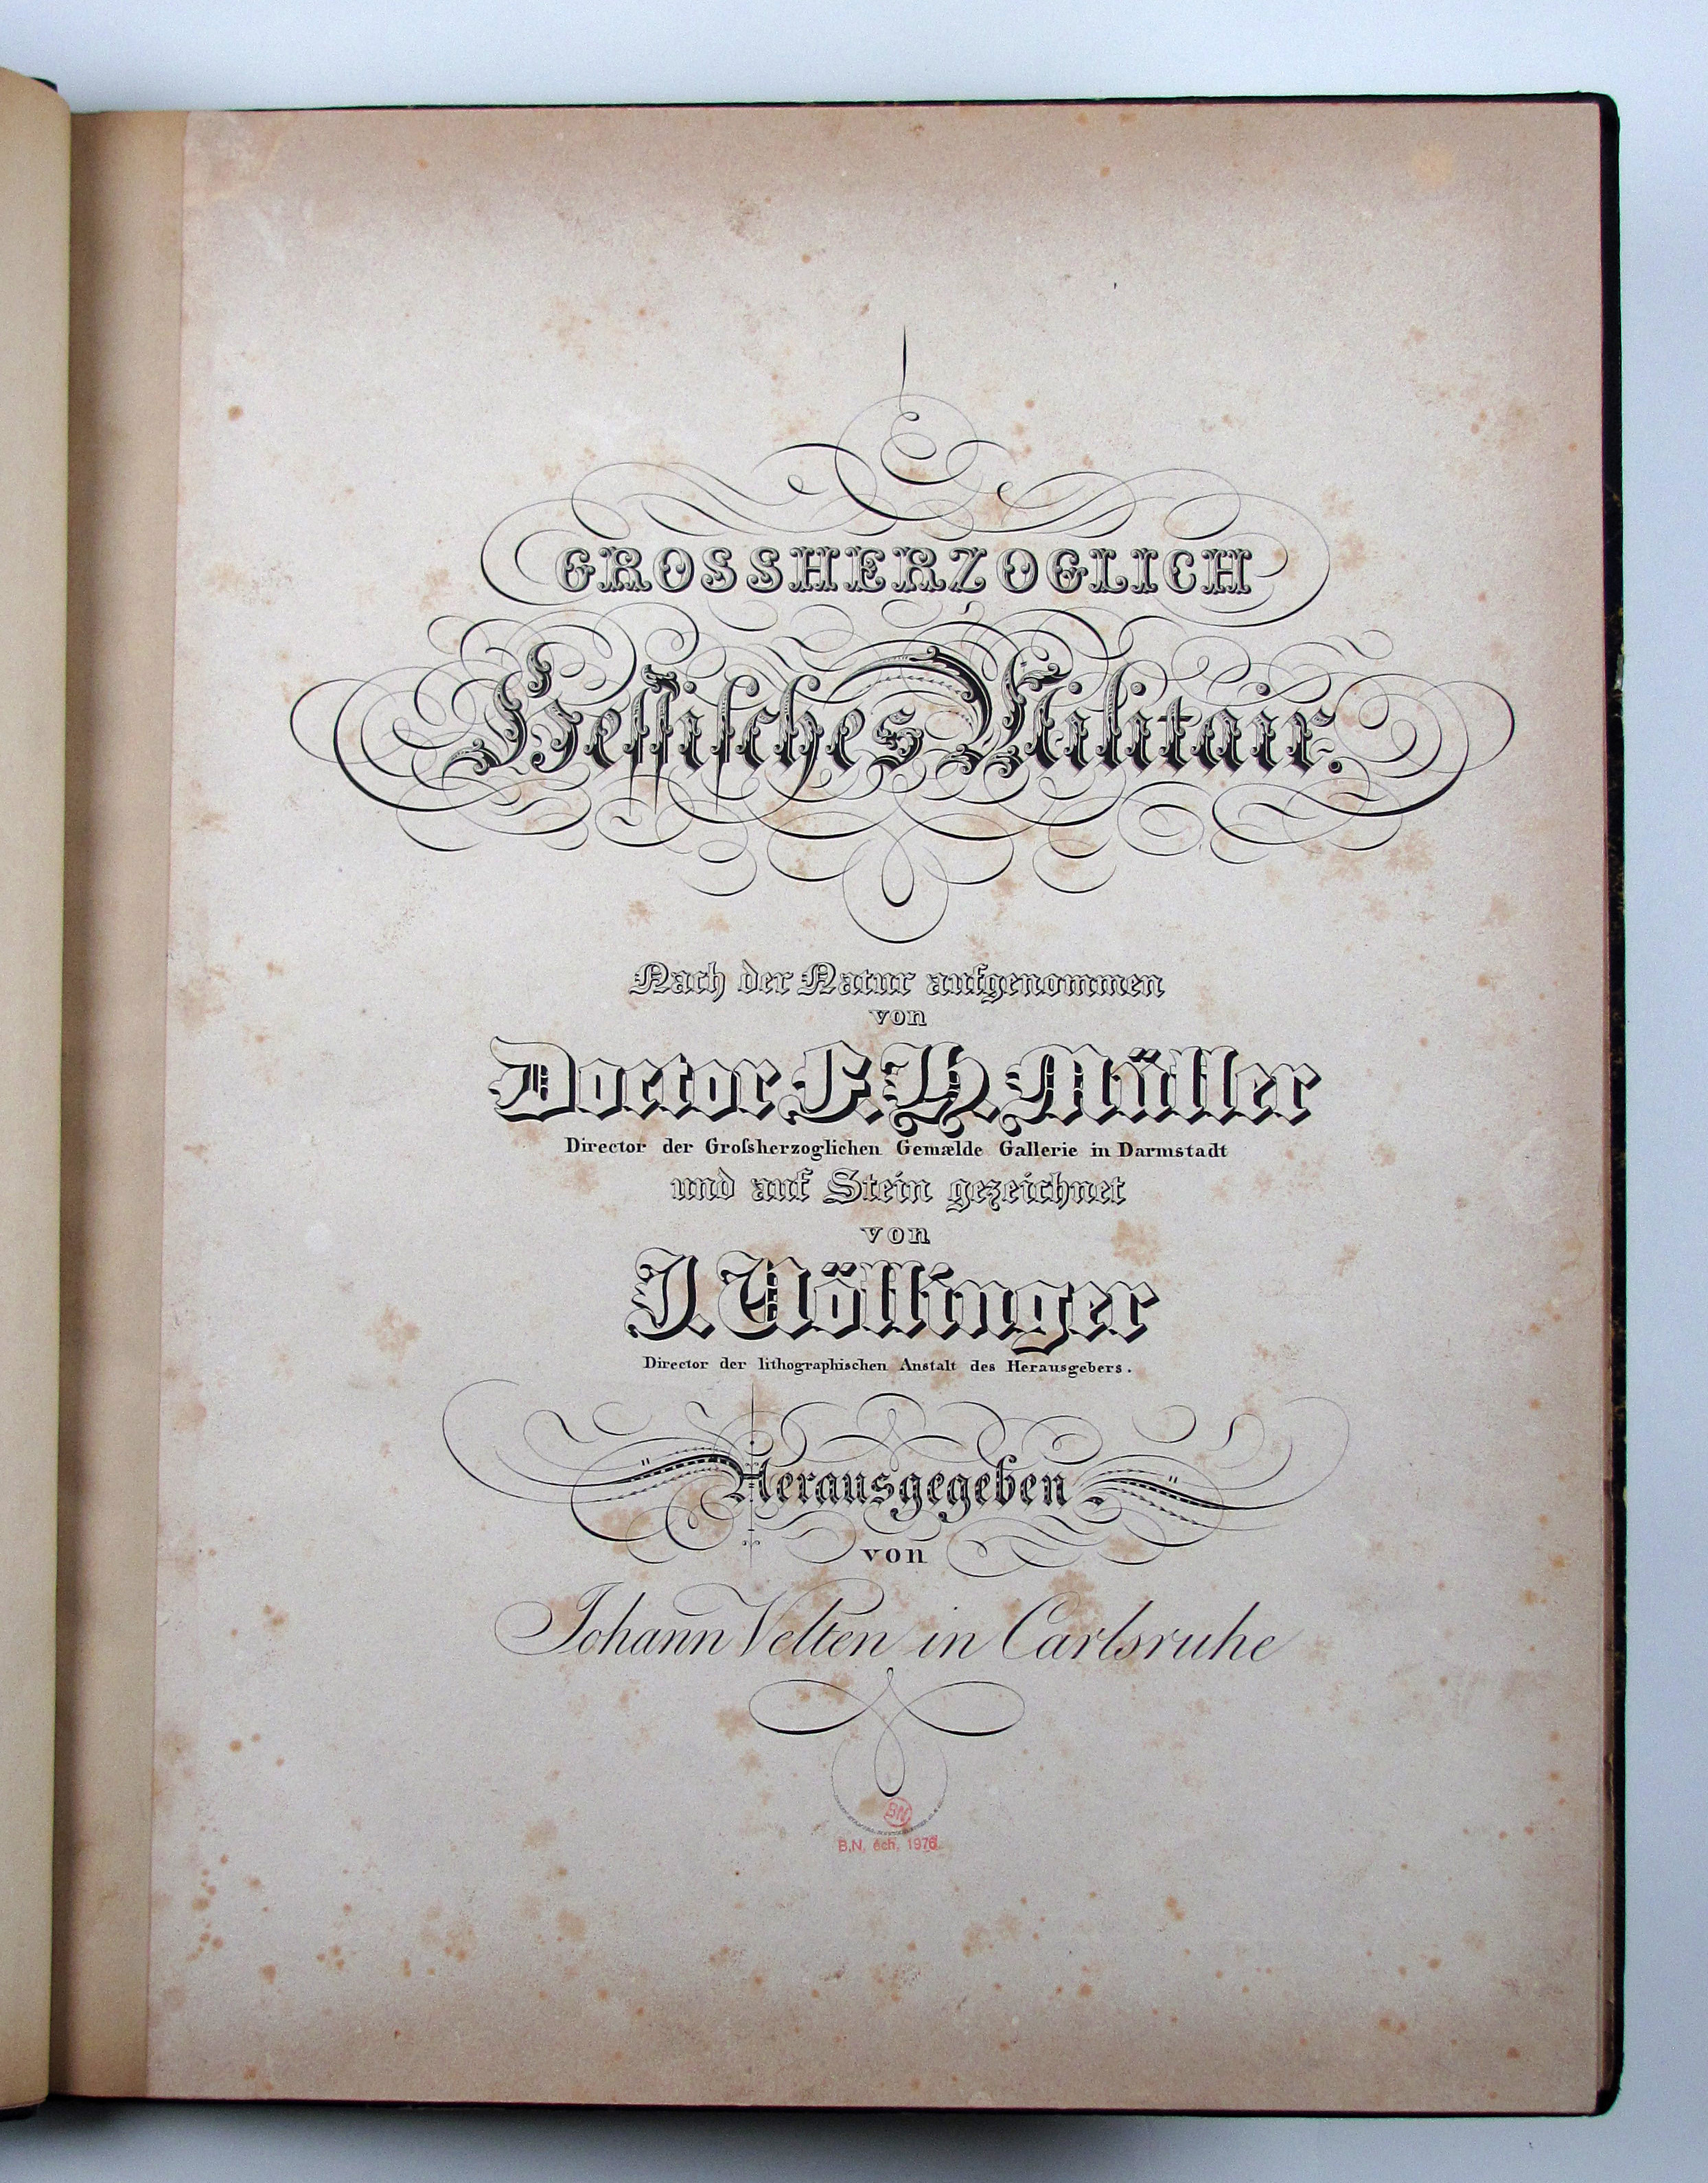 GROSSHERZOGLICH
Hessisches Militair.
Nach der Natur aufgenommen
von
Doctor F. H. Müller
Director der Groſsherzoglichen Gemælde Gallerie in Darmstadt
und auf Stein gezeichnet
von
J. Völlinger
Director der lithographischen Anstalt des Herausgebers.
Herausgegeben
von
Johann Velten in Carlsruhe
BN
B.N. éch. 1976